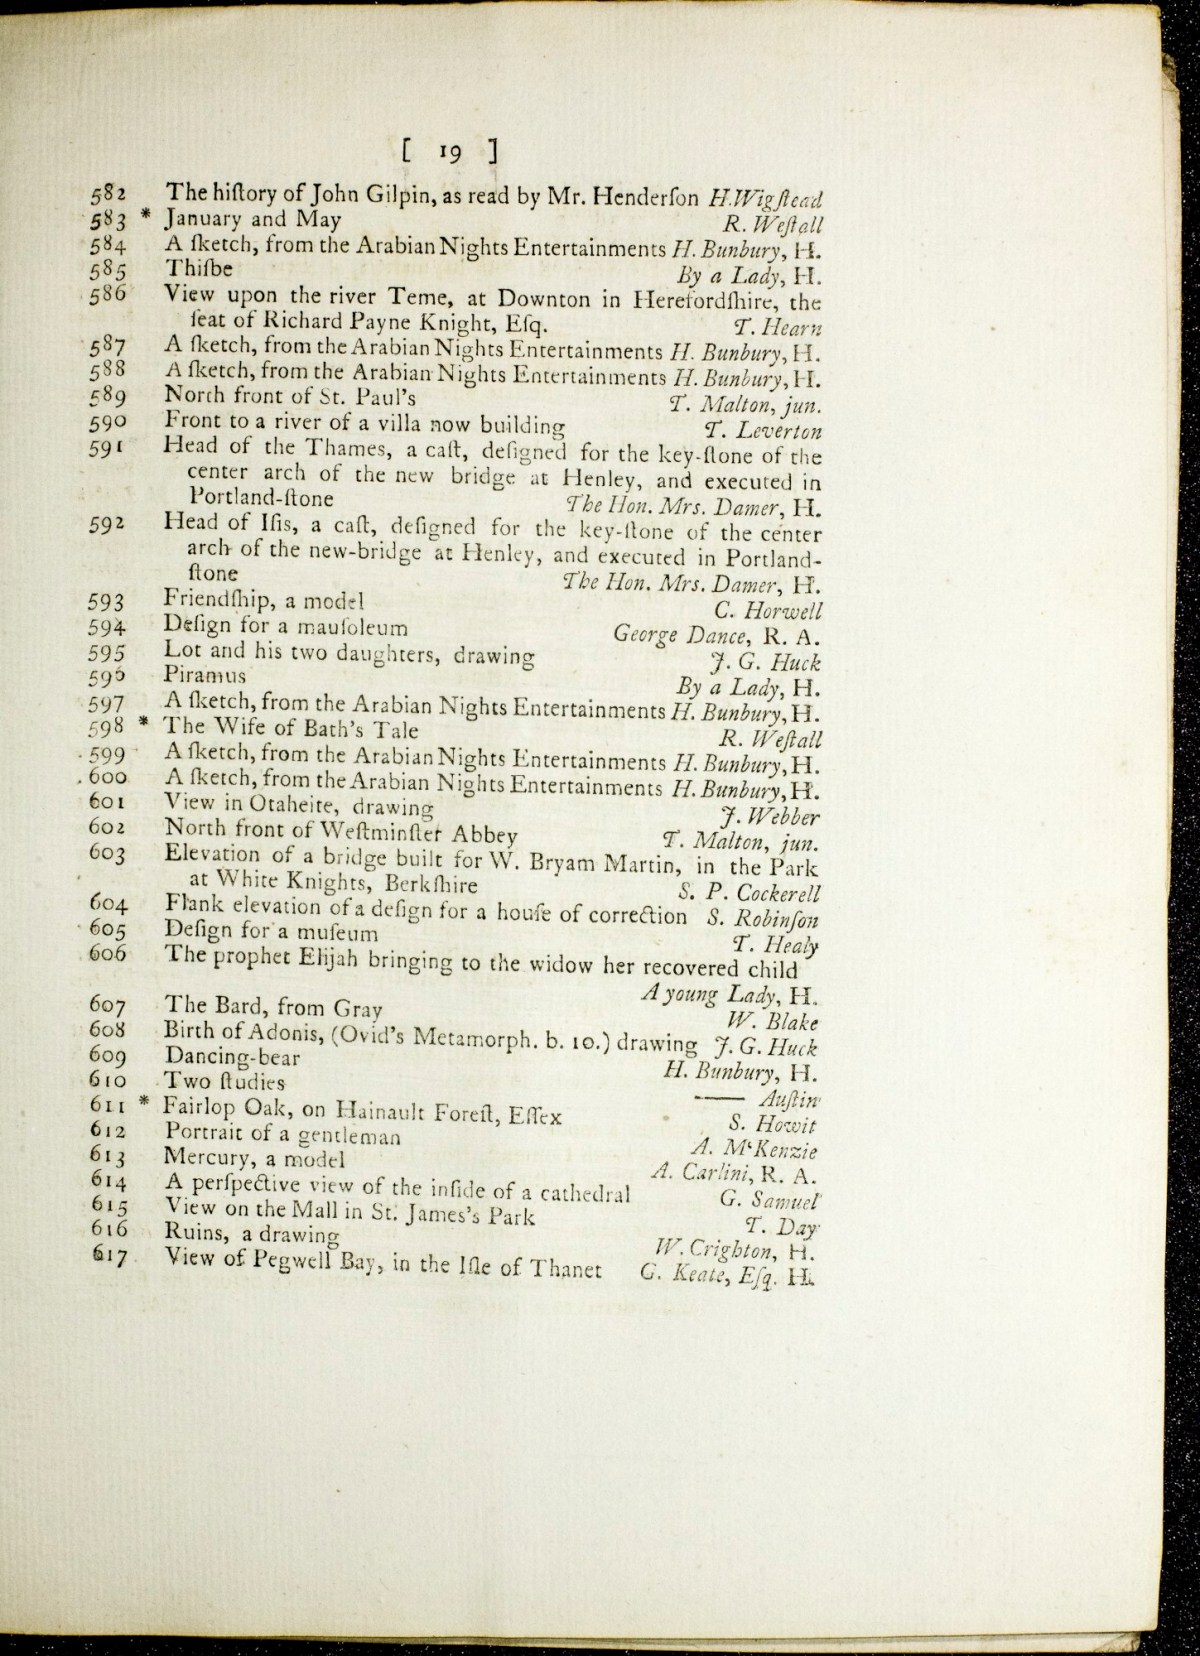 [ 19 ]
582 The hiſtory of John Gilpin, as read by Mr. Henderſon H. Wigſtead
583 * January and May R. Weſtall
584 A ſketch, from the Arabian Nights Entertainments H. Bunbury, H.
585 Thiſbe By a Lady, H.
586 View upon the river Teme, at Downton in Herefordſhire, the
ſeat of Richard Payne Knight, Eſq. T. Hearn
587 A ſketch, from the Arabian Nights Entertainments H. Bunbury, H.
588 A ſketch, from the Arabian Nights Entertainments H. Bunbury, H.
589 North front of St. Paul's T. Malton, jun.
590 Front to a river of a villa now building T. Leverton
591 Head of the Thames, a caſt, deſigned for the key-ſtone of the
center arch of the new bridge at Henley, and executed in
Portland-ſtone The Hon. Mrs. Damer, H.
592 Head of Iſis, a caſt, deſigned for the key-ſtone of the center
arch of the new-bridge at Henley, and executed in Portland-
ſtone The Hon. Mrs. Damer, H.
593 Friendſhip, a model C. Horwell
594 Deſign for a mauſoleum George Dance, R. A.
595 Lot and his two daughters, drawing J. G. Huck
596 Piramus By a Lady, H.
597 A ſketch, from the Arabian Nights Entertainments H. Bunbury, H.
598 * The Wife of Bath's Tale R. Weſtall
599 A ſketch, from the Arabian Nights Entertainments H. Bunbury, H.
600 A ſketch, from the Arabian Nights Entertainments H. Bunbury, H.
601 View in Otaheite, drawing J. Webber
602 North front of Weſtminſter Abbey T. Malton, jun.
603 Elevation of a bridge built for W. Bryam Martin, in the Park
at White Knights, Berkſhire S. P. Cockerell
604 Flank elevation of a deſign for a houſe of correction S. Robinſon
605 Deſign for a muſeum T. Healy
606 The prophet Elijah bringing to the widow her recovered child
A young Lady, H.
607 The Bard, from Gray W. Blake
608 Birth of Adonis, (Ovid's Metamorph. b. 10.) drawing J. G. Huck
609 Dancing-bear H. Bunbury, H.
610 Two ſtudies —— Auſtin
611 * Fairlop Oak, on Hainault Foreſt, Eſſex S. Howit
612 Portrait of a gentleman A. M‘Kenzie
613 Mercury, a model A. Carlini, R. A.
614 A perſpective view of the inſide of a cathedral G. Samuel
615 View on the Mall in St. James's Park T. Day
616 Ruins, a drawing W. Crighton, H.
617 View of Pegwell Bay, in the Iſle of Thanet G. Keate, Eſq. H.